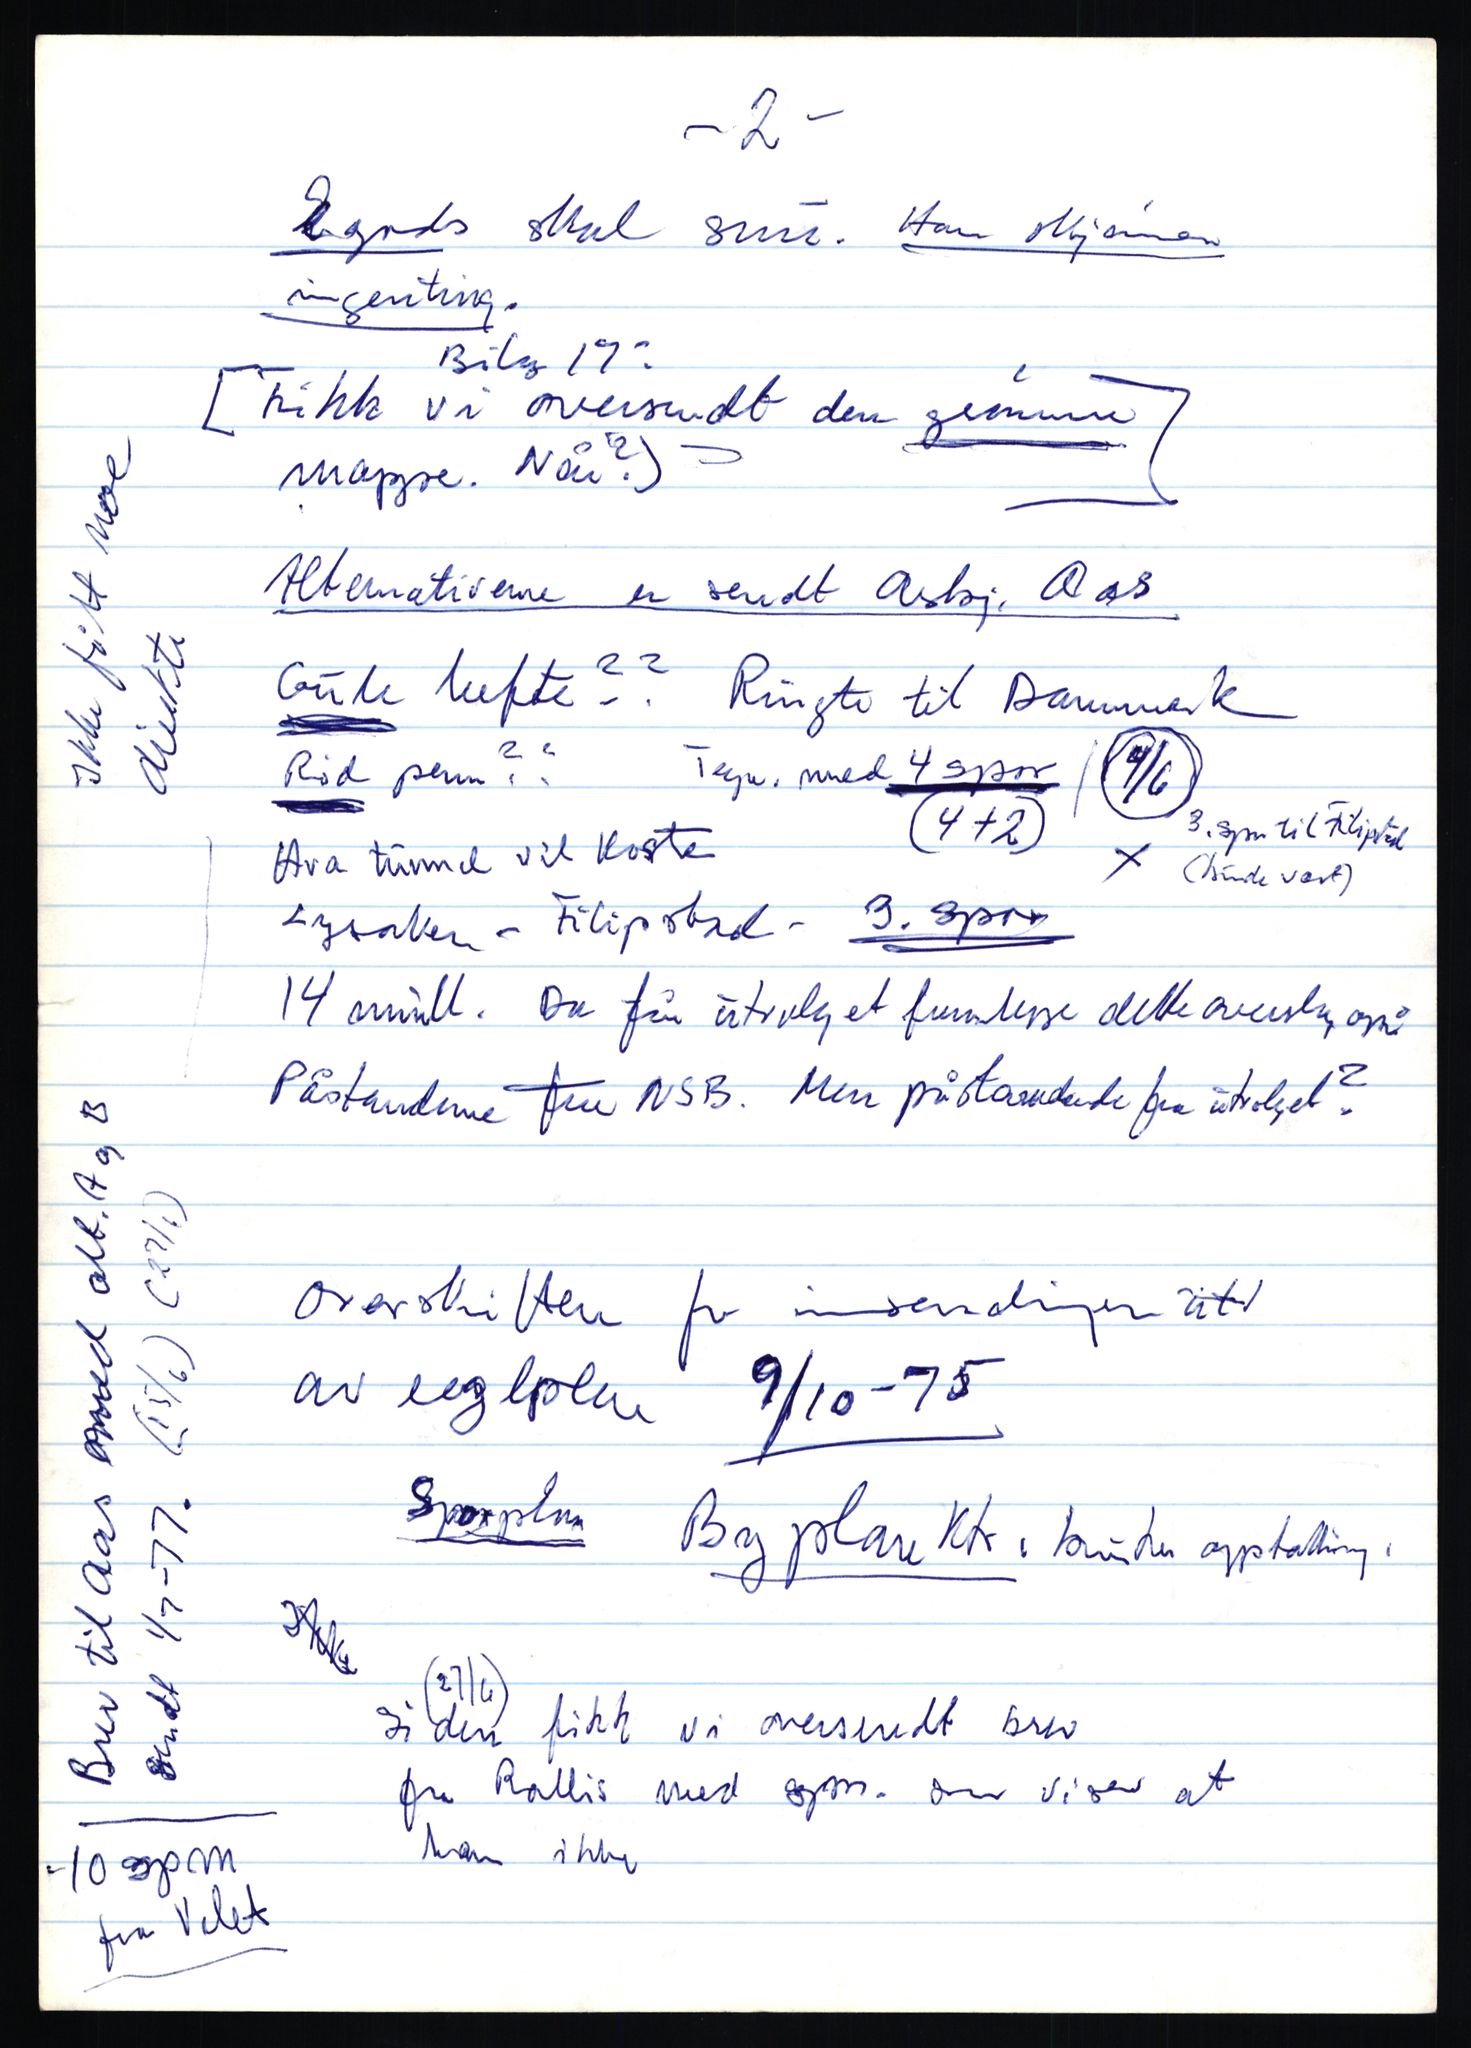 - 2 -
skal snu. Han skjønner
ingenting.
Bilag 17:
[Fikk vi oversendt den grønne
mappe. Når?)]
Alternativene er sendt Asbj. Aas
Gule hefte?? Ringte til Danmark
Rød perm?? Tegn. med 4 spor / 9/6
(4+2)
3. spor til Filipstad
Hva tunnel vil koste
×
(burde vært)
Lysaker - Filipstad - 3. spor
14 mill. Da får utvalget fremlegge dette overslag også
Påstandene fra NSB. Men påstandende fra utvalget?
Overskriften for innsendingen utv
av regl plan 9/10-75
Sporplan Byplanektr. oppstalling.
Ikke
(27/6)
Siden fikk vi oversendt brev
fra Rallis med spm. som viser at
han ikke
Ikke fått noe
direkte
Brev til Aas med alt. A og B
sendt 4/7-77. (15/6) (27/6)
-10 spm
fra